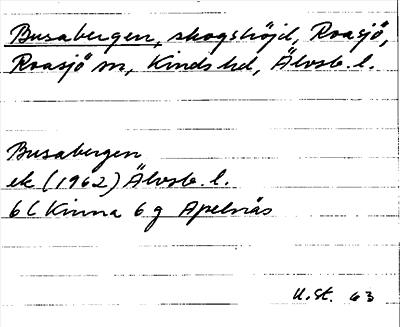 Busabergen, skogshöjd, Roasjö,
Roasjö sn, Kinds hd, Älvsb. l.
Busabergen
ek (1962) Älvsb. l.
6C Kinna 6 g Apelnäs
U. St. 63